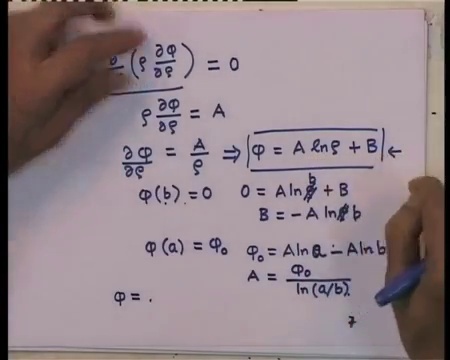 ∂/∂ρ (ρ ∂φ/∂ρ) = 0
ρ ∂φ/∂ρ = A
∂φ/∂ρ = A/ρ ⇒ φ = A lnρ + B ←
φ(b) = 0 0 = A ln b + B
B = -A ln b
φ(a) = φ₀ φ₀ = A ln a - A ln b
A = φ₀/ln(a/b)
φ = .